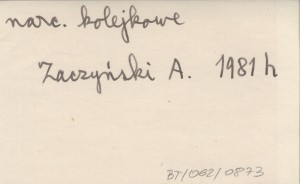 narc. kolejkowe
Zaczyński A. 1981 h
BT/062/0873